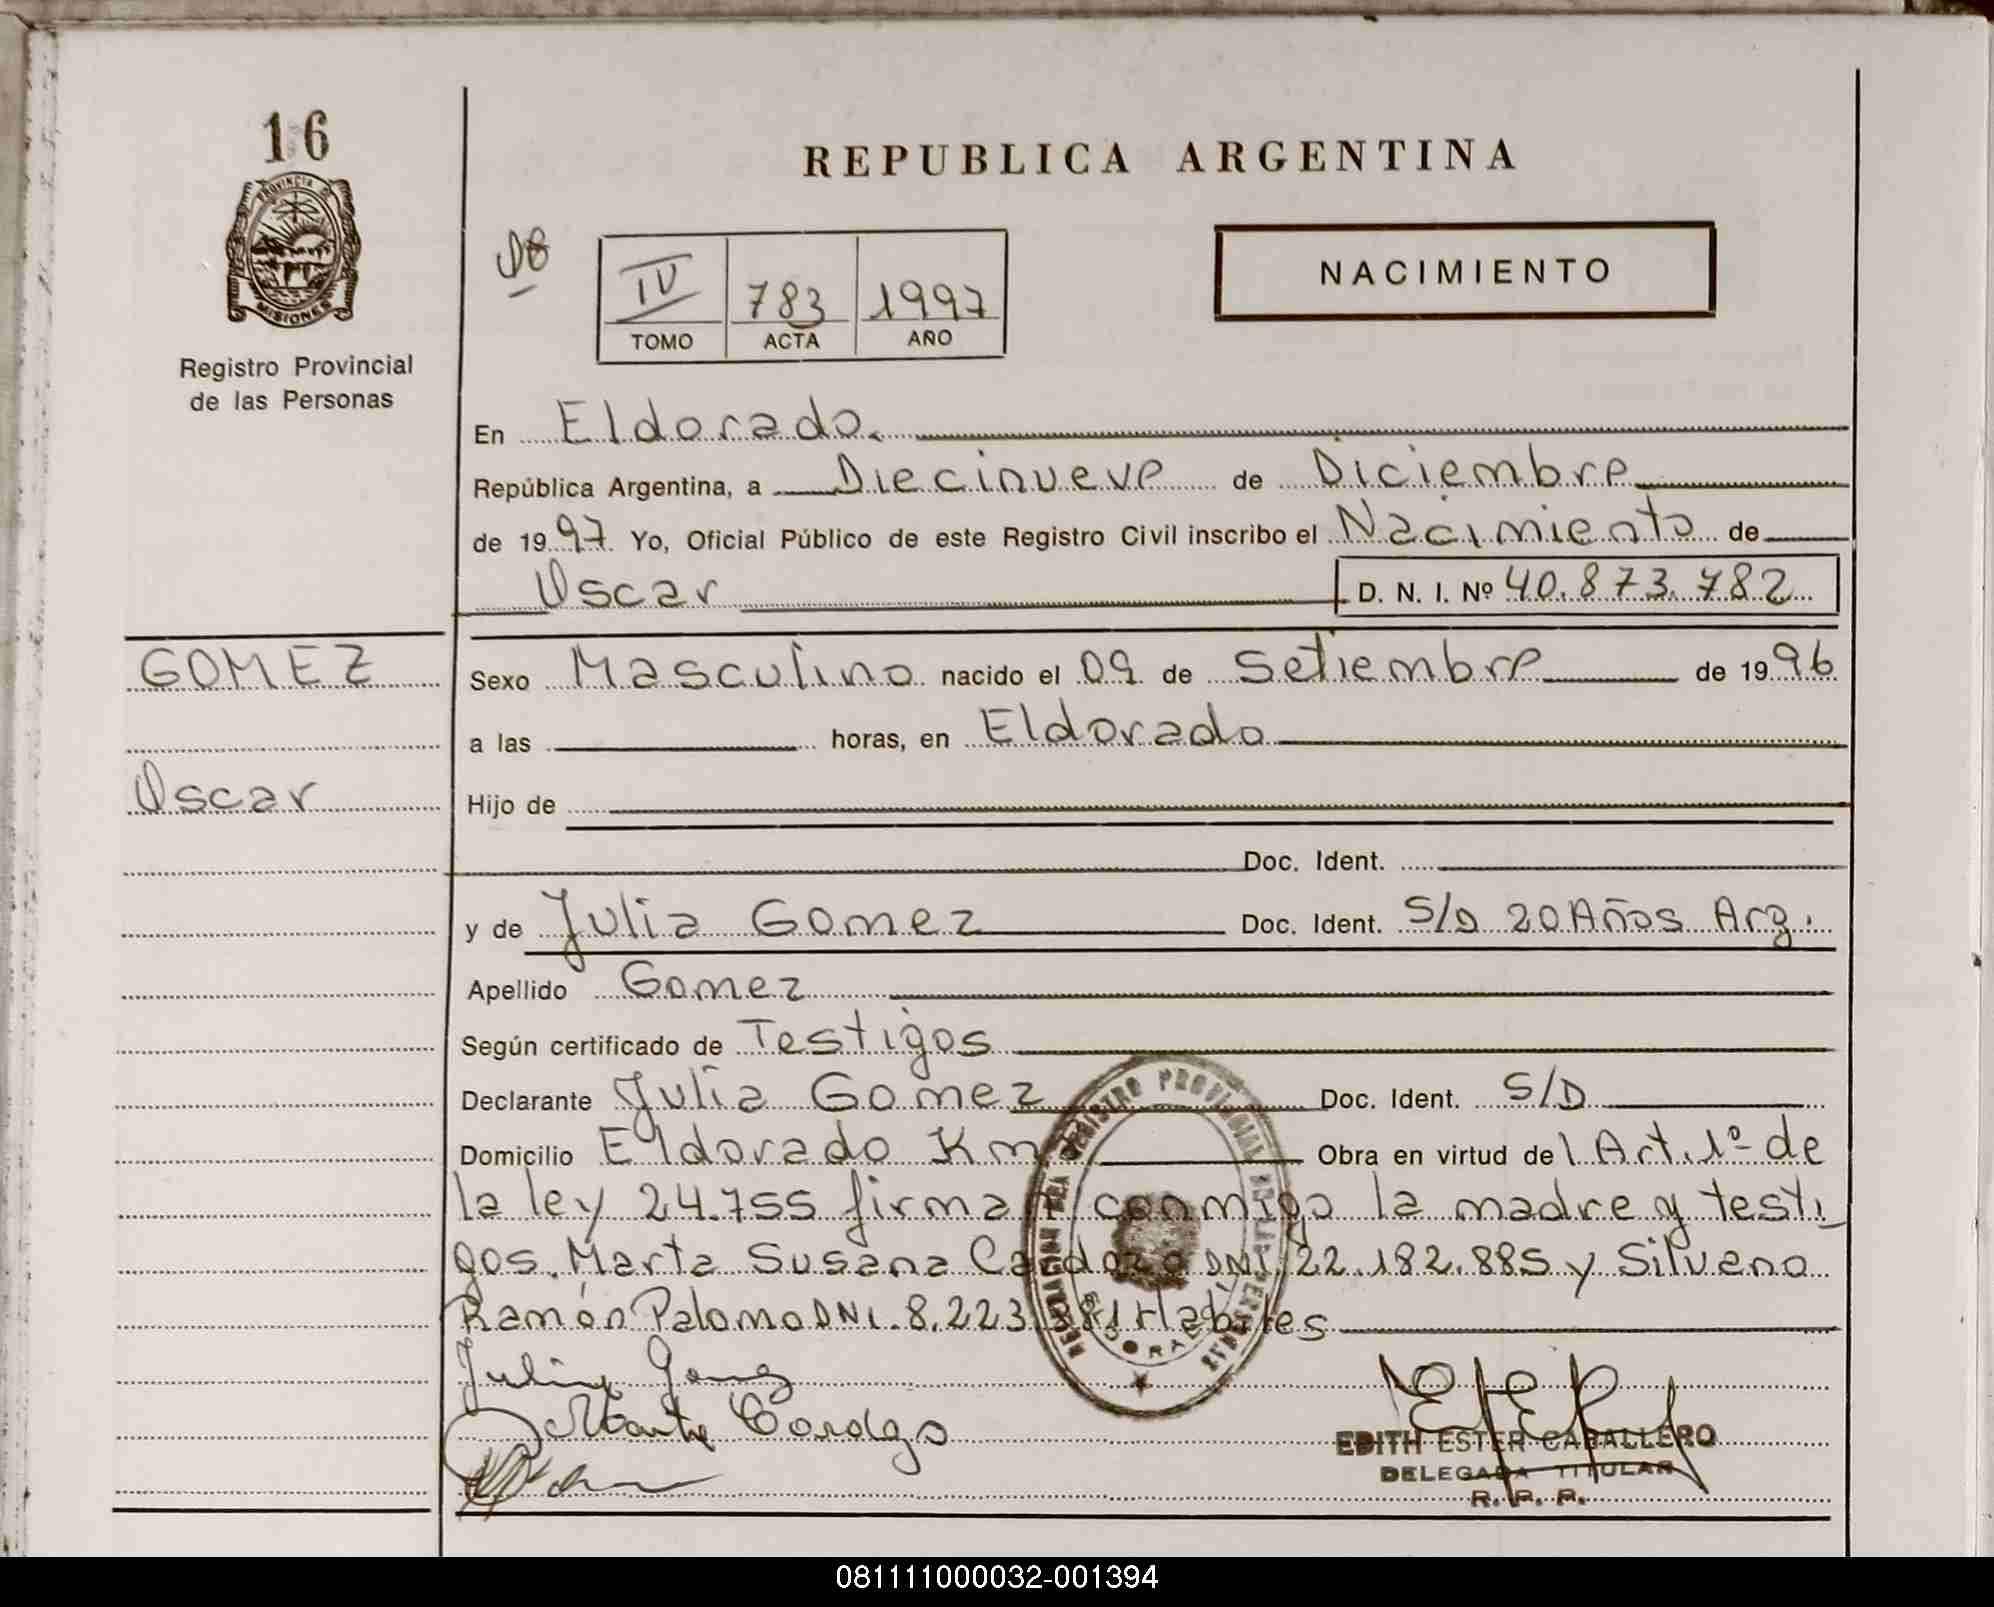 16
PROVINCIA D
MISIONES
Registro Provincial
de las Personas
REPUBLICA ARGENTINA
IV 783 1997
TOMO ACTA AÑO
NACIMIENTO
En Eldorado.
República Argentina, a Diecinueve de Diciembre
de 1997 Yo, Oficial Público de este Registro Civil inscribo el Nacimiento de
Oscar D. N. I. Nº 40.873.782
GOMEZ
Oscar
Sexo Masculino nacido el 09 de Setiembre de 1996
a las horas, en Eldorado
Hijo de
Doc. Ident.
y de Julia Gomez Doc. Ident. S/D 20 Años Arg.
Apellido Gomez
Según certificado de Testigos
Declarante Julia Gomez Doc. Ident. S/D
Domicilio Eldorado Km Obra en virtud del Art. 1º de
la ley 24.755 firman conmigo la madre y testi
gos. Marta Susana Cardozo DNI. 22.182.885 y Silveno
Ramón Palomo DNI. 8.223.381 Habiles
REGISTRO PROVINCIAL DE LAS PERSONAS
EDITH ESTER CABALLERO
DELEGADA TITULAR
R. P. P.
081111000032-001394